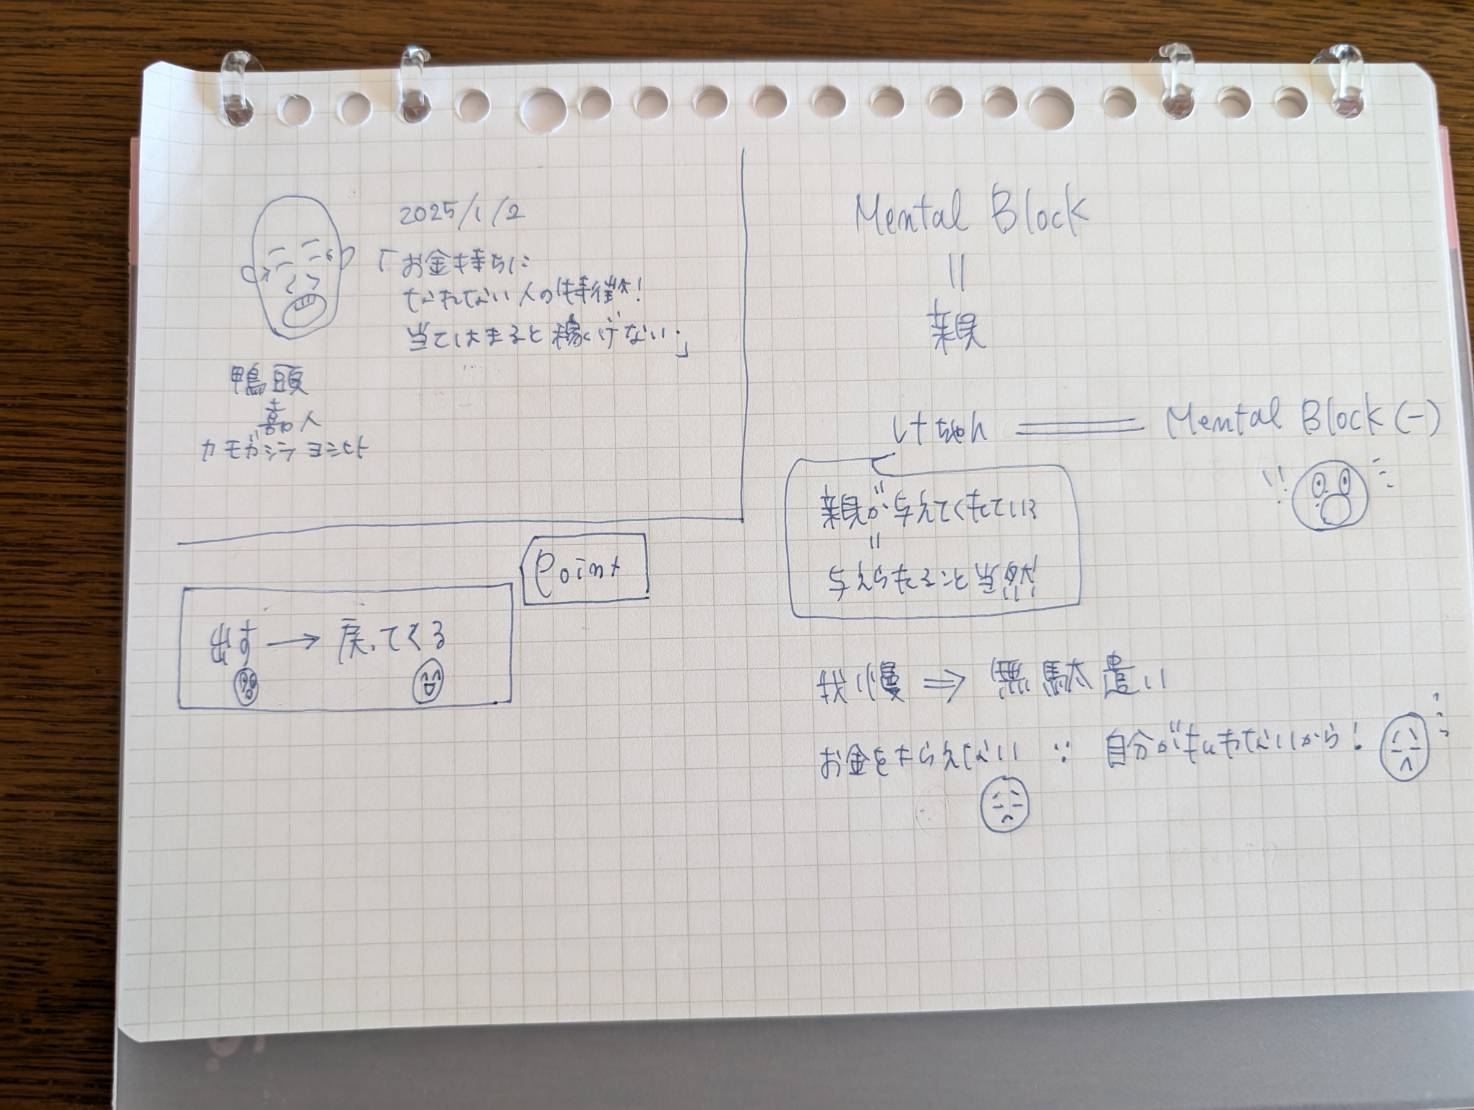 2025/1/2
「お金持ちに
なれない人の特徴!
当てはまると稼げない」
鴨頭
嘉人
カモガシラ ヨシヒト
Point
出す → 戻ってくる
Mental Block
=
親
= Mental Block (-)
親が与えてくれている
=
与えられること当然
我慢 ⇒ 無駄遣い
お金をもらえない ∵ 自分がもれてないから!